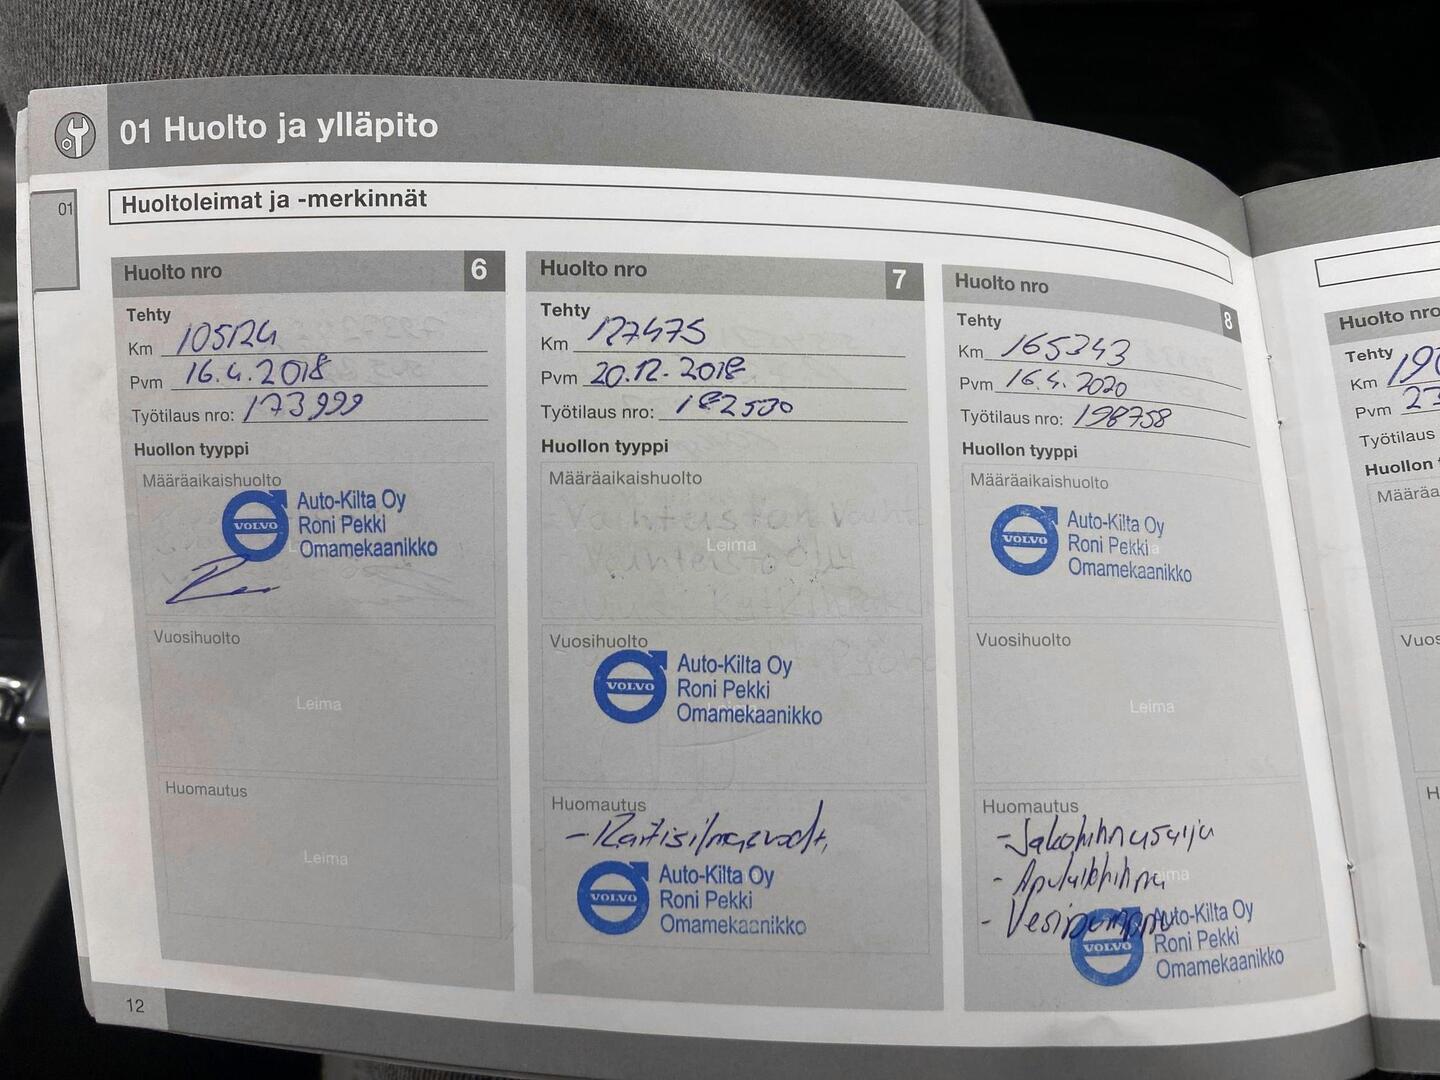 01 Huolto ja ylläpito
01
Huoltoleimat ja -merkinnät
Huolto nro 6
Tehty
Km 105124
Pvm 16.4.2018
Työtilaus nro: 173999
Huollon tyyppi
Määräaikaishuolto
VOLVO
Auto-Kilta Oy
Roni Pekki
Omamekaanikko
Vuosihuolto
Leima
Huomautus
Leima
Huolto nro 7
Tehty
Km 127475
Pvm 20.12.2018
Työtilaus nro: 182500
Huollon tyyppi
Määräaikaishuolto
Leima
Vuosihuolto
VOLVO
Auto-Kilta Oy
Roni Pekki
Omamekaanikko
Huomautus
- Raitisilmasuodt.
VOLVO
Auto-Kilta Oy
Roni Pekki
Omamekaanikko
Huolto nro 8
Tehty
Km 165343
Pvm 16.4.2020
Työtilaus nro: 198758
Huollon tyyppi
Määräaikaishuolto
VOLVO
Auto-Kilta Oy
Roni Pekki
Omamekaanikko
Vuosihuolto
Leima
Huomautus
- Jakohihnasarja
- Apulaitehihna
- Vesipumppu
VOLVO
Auto-Kilta Oy
Roni Pekki
Omamekaanikko
Huolto nro
Tehty
Km
Pvm
Työtilaus
12